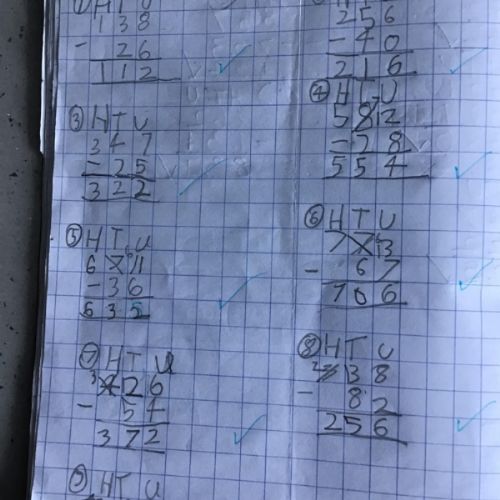 ① H T U
138
- 26
112
256
- 40
216
③ H T U
347
- 25
322
④ H T U
582
- 28
554
⑤ H T U
671
- 36
635
⑥ H T U
773
- 67
706
⑦ H T U
426
- 54
372
⑧ H T U
338
- 82
256
⑨ H T U